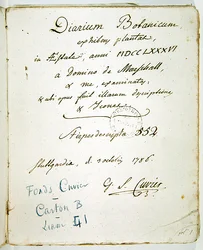 Diarium Botanicum
exhibens plantas,
in Aestate, anni MDCCLXXXVI
a Domino de Marschall,
& me, examinatas,
& ubi opus fuit illarum descriptiones
& Icones
descripta 352
Stuttgardia, d. octobris 1786.
G. L. Cuvier
Fonds Cuvier
Carton B
Liasse 1